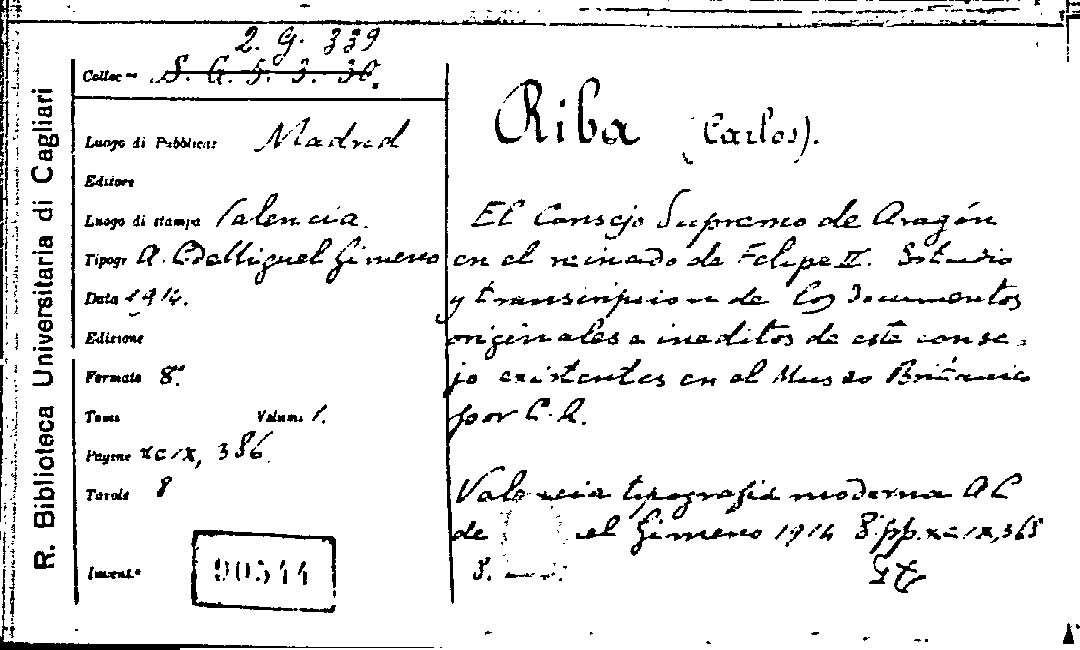 R. Biblioteca Universitaria di Cagliari
2. G. 339
Colloc- S. G. 5. 3. 36.
Luogo di Pubblicaz Madrid
Editore
Luogo di stampa Valencia.
Tipogr A. C. de Miguel Gimeno
Data 1914.
Edizione
Formato 8.º
Tomo Volumi 1.
Pagine XCIX, 386.
Tavole 8
Invent.º 90544
Riba (Carlos).
El Consejo Supremo de Aragón
en el reinado de Felipe II. Estudio
y transcripcion de los documentos
originales e ineditos de este conse-
jo existentes en el Museo Británico
por C. R.
Valencia tipografia moderna A C
de el Gimeno 1914 8.º pp. XCIX, 368
8.